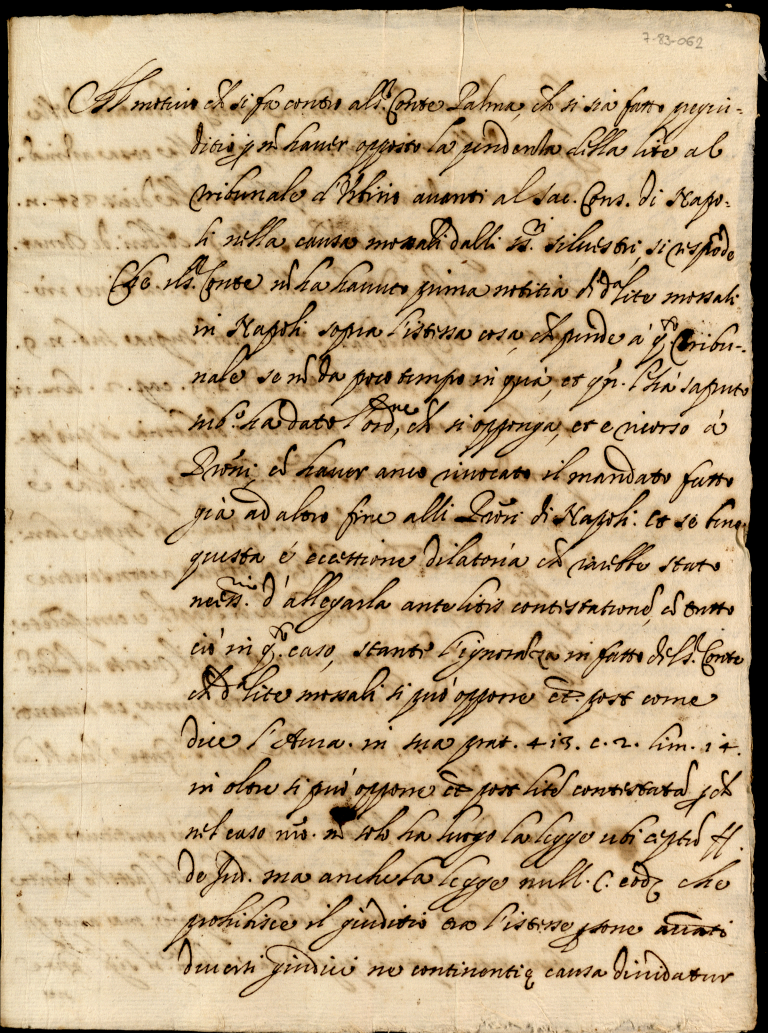 7-83-062
Al motivo ch si fa contro al S.r Conte Palma, ch si sia fatto pregiu-
ditio p nō haver opposto la pendenza della lite al
tribunale d'Urbino avanti al sac. Cons. di Napo-
li nella causa mossali dalli ss.ri silvestri, si respōde
Che il S.r Conte nō ha havuto prima notitia di d.a lite mossali
in Napoli sopra l'istessa cosa, ch pende a q.to tribu-
nale se nō da poco tempo in quà, et qn. l'ha saputo
sub.o ha dato l'ord.ne, ch si opponga, et e ricorso à
Prōri, cō haver anco rivocato il mandato fatto
già ad altro fine alli Prōri di Napoli. et se bene
questa é eccettione dilatoria ch sarebbe stato
necess.rio d'allegarla ante litis contestationē, cō tutto
ciò in q.to caso, stante l'ignorāza in fatto del S.r Conte
ch d.a lite mossali si può opporre et. post come
dice l' in sua prat. 413. c. 2. lim. 14.
in oltre si può opporre et post litē contestatā p ch
nel caso nrō. nō solo ha luogo la legge ubi ceptū ff.
de Jud. ma anche la legge null. C. eod. che
prohibisce il giuditio tra l'istesse psone avāti
diversi giudici ne continentia causa dividatur